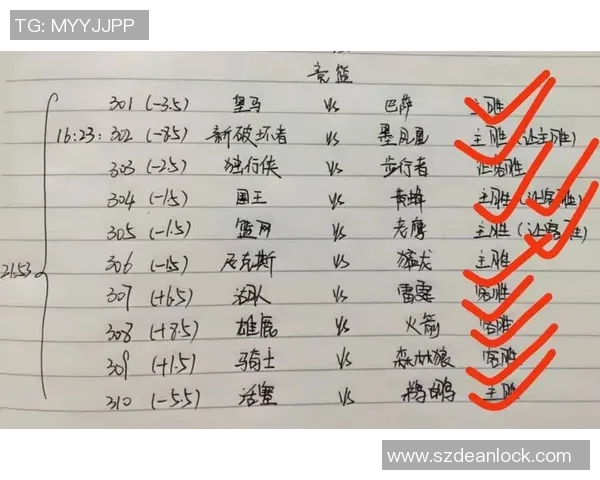 TG: MYYJJPP
竞篮
301 (-3.5) 皇马 Vs 巴萨 主胜
16:23: 302 (-8.5) 新破坏者 Vs 墨凤凰 主胜 (让主胜)
303 (-2.5) 独行侠 Vs 步行者 让客胜
304 (-1.5) 国王 Vs 黄蜂 主胜 (让客胜)
305 (-1.5) 篮网 Vs 老鹰 主胜 (让客胜)
21:53 306 (-1.5) 尼克斯 Vs 猛龙 主胜
307 (+6.5) Vs 雷霆 客胜
308 (+8.5) 雄鹿 Vs 火箭 客胜
309 (+1.5) 骑士 Vs 森林狼 客胜
310 (-5.5) 活塞 Vs 鹈鹕 主胜
www.szdeanlock.com